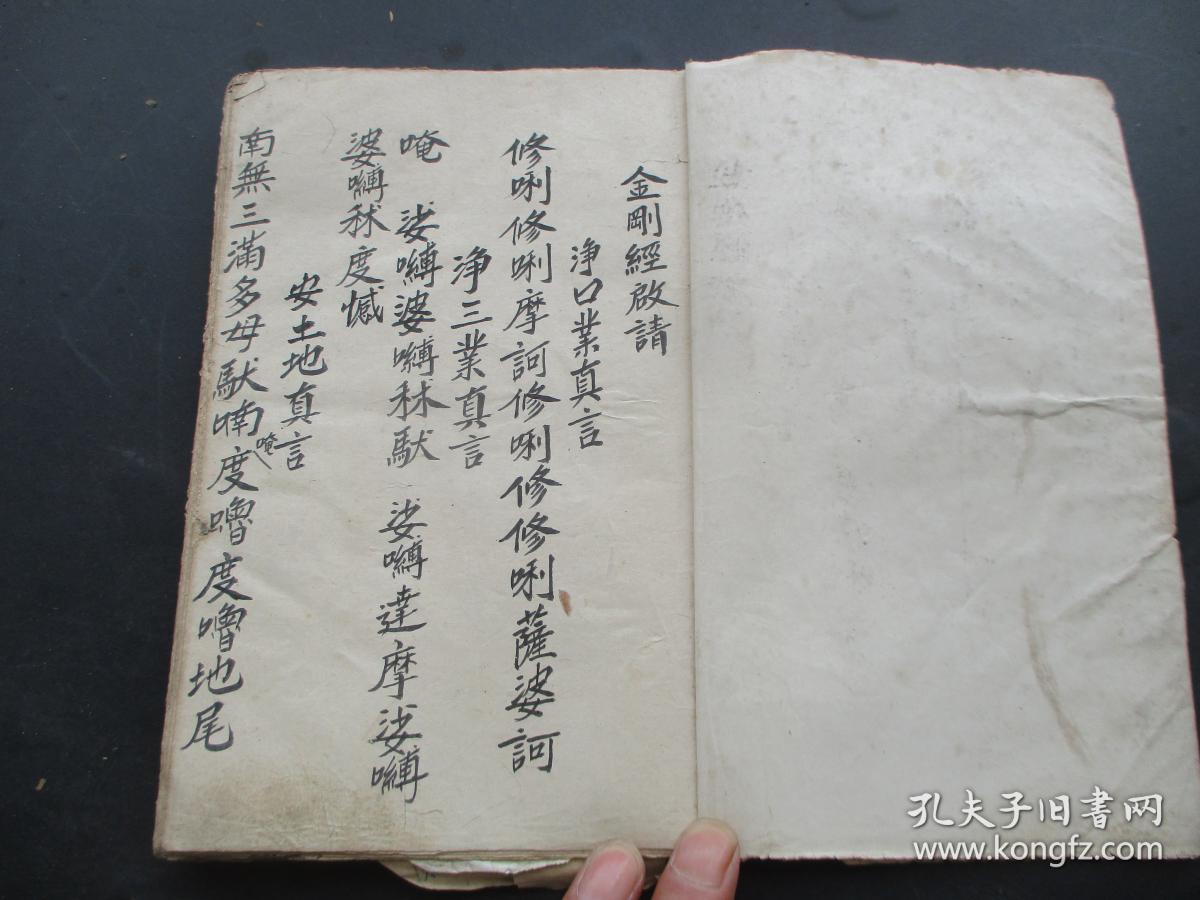 金剛經啟請
淨口業真言
修唎修唎摩訶修唎修修唎薩婆訶
淨三業真言
唵 娑嚩婆嚩秫馱 娑嚩達摩娑嚩
婆嚩秫度憾
安土地真言
南無三滿多母馱喃唵度嚕度嚕地尾
孔夫子旧书网
www.kongfz.com